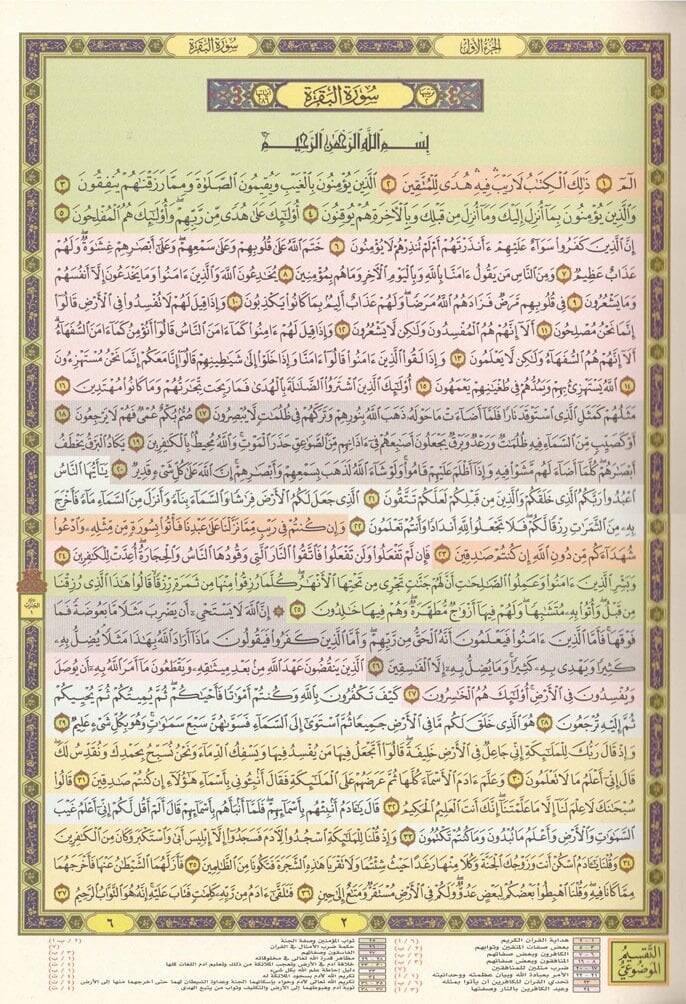 الجزء الأول
سورة البقرة
سورة البقرة
بسم الله الرحمن الرحيم
الم ١ ذلك الكتب لا ريب فيه هدى للمتقين ٢ الذين يؤمنون بالغيب ويقيمون الصلوة ومما رزقنهم ينفقون ٣
والذين يؤمنون بما أنزل إليك وما أنزل من قبلك وبالآخرة هم يوقنون ٤ أولئك على هدى من ربهم وأولئك هم المفلحون ٥
إن الذين كفروا سواء عليهم ءأنذرتهم أم لم تنذرهم لا يؤمنون ٦ ختم الله على قلوبهم وعلى سمعهم وعلى أبصرهم غشوة ولهم
عذاب عظيم ٧ ومن الناس من يقول ءامنا بالله وباليوم الآخر وما هم بمؤمنين ٨ يخدعون الله والذين ءامنوا وما يخدعون إلا أنفسهم
وما يشعرون ٩ في قلوبهم مرض فزادهم الله مرضا ولهم عذاب أليم بما كانوا يكذبون ١٠ وإذا قيل لهم لا تفسدوا في الأرض قالوا
إنما نحن مصلحون ١١ ألا إنهم هم المفسدون ولكن لا يشعرون ١٢ وإذا قيل لهم ءامنوا كما ءامن الناس قالوا أنؤمن كما ءامن السفهاء
ألا إنهم هم السفهاء ولكن لا يعلمون ١٣ وإذا لقوا الذين ءامنوا قالوا ءامنا وإذا خلوا إلى شيطينهم قالوا إنا معكم إنما نحن مستهزءون
١٤ الله يستهزئ بهم ويمدهم في طغينهم يعمهون ١٥ أولئك الذين اشتروا الضللة بالهدى فما ربحت تجرتهم وما كانوا مهتدين ١٦
مثلهم كمثل الذي استوقد نارا فلما أضاءت ما حوله ذهب الله بنورهم وتركهم في ظلمت لا يبصرون ١٧ صم بكم عمي فهم لا يرجعون ١٨
أو كصيب من السماء فيه ظلمت ورعد وبرق يجعلون أصبعهم في ءاذانهم من الصوعق حذر الموت والله محيط بالكفرين ١٩ يكاد البرق يخطف
أبصرهم كلما أضاء لهم مشوا فيه وإذا أظلم عليهم قاموا ولو شاء الله لذهب بسمعهم وأبصرهم إن الله على كل شيء قدير ٢٠ يأيها الناس
اعبدوا ربكم الذي خلقكم والذين من قبلكم لعلكم تتقون ٢١ الذي جعل لكم الأرض فرشا والسماء بناء وأنزل من السماء ماء فأخرج
به من الثمرت رزقا لكم فلا تجعلوا لله أندادا وأنتم تعلمون ٢٢ وإن كنتم في ريب مما نزلنا على عبدنا فأتوا بسورة من مثله وادعوا
شهداءكم من دون الله إن كنتم صدقين ٢٣ فإن لم تفعلوا ولن تفعلوا فاتقوا النار التي وقودها الناس والحجارة أعدت للكفرين ٢٤
وبشر الذين ءامنوا وعملوا الصلحت أن لهم جنت تجري من تحتها الأنهر كلما رزقوا منها من ثمرة رزقا قالوا هذا الذي رزقنا
من قبل وأتوا به متشبها ولهم فيها أزوج مطهرة وهم فيها خلدون ٢٥ إن الله لا يستحي أن يضرب مثلا ما بعوضة فما
فوقها فأما الذين ءامنوا فيعلمون أنه الحق من ربهم وأما الذين كفروا فيقولون ماذا أراد الله بهذا مثلا يضل به
كثيرا ويهدي به كثيرا وما يضل به إلا الفسقين ٢٦ الذين ينقضون عهد الله من بعد ميثقه ويقطعون ما أمر الله به أن يوصل
ويفسدون في الأرض أولئك هم الخسرون ٢٧ كيف تكفرون بالله وكنتم أموتا فأحيكم ثم يميتكم ثم يحييكم
ثم إليه ترجعون ٢٨ هو الذي خلق لكم ما في الأرض جميعا ثم استوى إلى السماء فسوىهن سبع سموت وهو بكل شيء عليم ٢٩
وإذ قال ربك للملئكة إني جاعل في الأرض خليفة قالوا أتجعل فيها من يفسد فيها ويسفك الدماء ونحن نسبح بحمدك ونقدس لك
قال إني أعلم ما لا تعلمون ٣٠ وعلم ءادم الأسماء كلها ثم عرضهم على الملئكة فقال أنبئوني بأسماء هؤلاء إن كنتم صدقين ٣١ قالوا
سبحنك لا علم لنا إلا ما علمتنا إنك أنت العليم الحكيم ٣٢ قال يئادم أنبئهم بأسمائهم فلما أنبأهم بأسمائهم قال ألم أقل لكم إني أعلم غيب
السموت والأرض وأعلم ما تبدون وما كنتم تكتمون ٣٣ وإذ قلنا للملئكة اسجدوا لآدم فسجدوا إلا إبليس أبى واستكبر وكان من الكفرين
٣٤ وقلنا يئادم اسكن أنت وزوجك الجنة وكلا منها رغدا حيث شئتما ولا تقربا هذه الشجرة فتكونا من الظلمين ٣٥ فأزلهما الشيطن عنها فأخرجهما
مما كانا فيه وقلنا اهبطوا بعضكم لبعض عدو ولكم في الأرض مستقر ومتع إلى حين ٣٦ فتلقى ءادم من ربه كلمت فتاب عليه إنه هو التواب الرحيم ٣٧
٢
٦
التقسيم الموضوعي
هداية القرآن الكريم
بعض صفات المتقين وثوابهم
الكافرون وبعض صفاتهم
المنافقون وبعض صفاتهم
ضرب مثلين للمنافقين
تحدي القرآن للكافرين أن يأتوا بمثله
وعيد الكافرين بالنار وصفتها
ثواب المؤمنين وصفة الجنة
حكمة ضرب الأمثال في القرآن
الفاسقون وصفاتهم
مظاهر قدرة الله تعالى في مخلوقاته